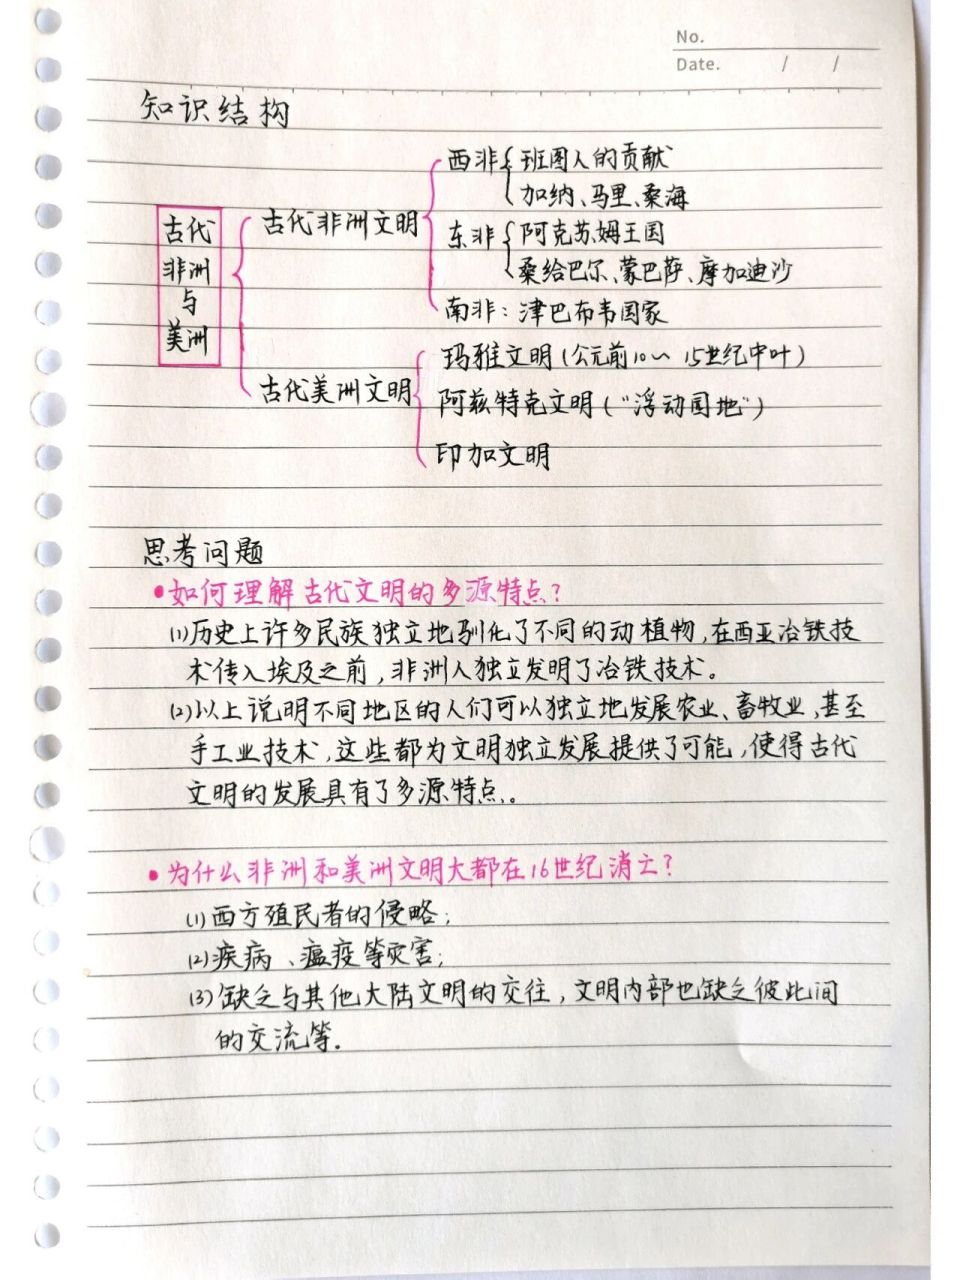 No.
Date. / /
知识结构
西非 班图人的贡献
加纳、马里、桑海
古代非洲文明
东非 阿克苏姆王国
桑给巴尔、蒙巴萨、摩加迪沙
南非：津巴布韦国家
古代
非洲
与
美洲
玛雅文明(公元前10～15世纪中叶)
古代美洲文明
阿兹特克文明("浮动园地")
印加文明
思考问题
•如何理解古代文明的多源特点?
(1)历史上许多民族独立地驯化了不同的动植物,在西亚冶铁技
术传入埃及之前,非洲人独立发明了冶铁技术。
(2)以上说明不同地区的人们可以独立地发展农业、畜牧业,甚至
手工业技术,这些都为文明独立发展提供了可能,使得古代
文明的发展具有了多源特点。
•为什么非洲和美洲文明大都在16世纪消亡?
(1)西方殖民者的侵略;
(2)疾病、瘟疫等灾害;
(3)缺乏与其他大陆文明的交往,文明内部也缺乏彼此间
的交流等.